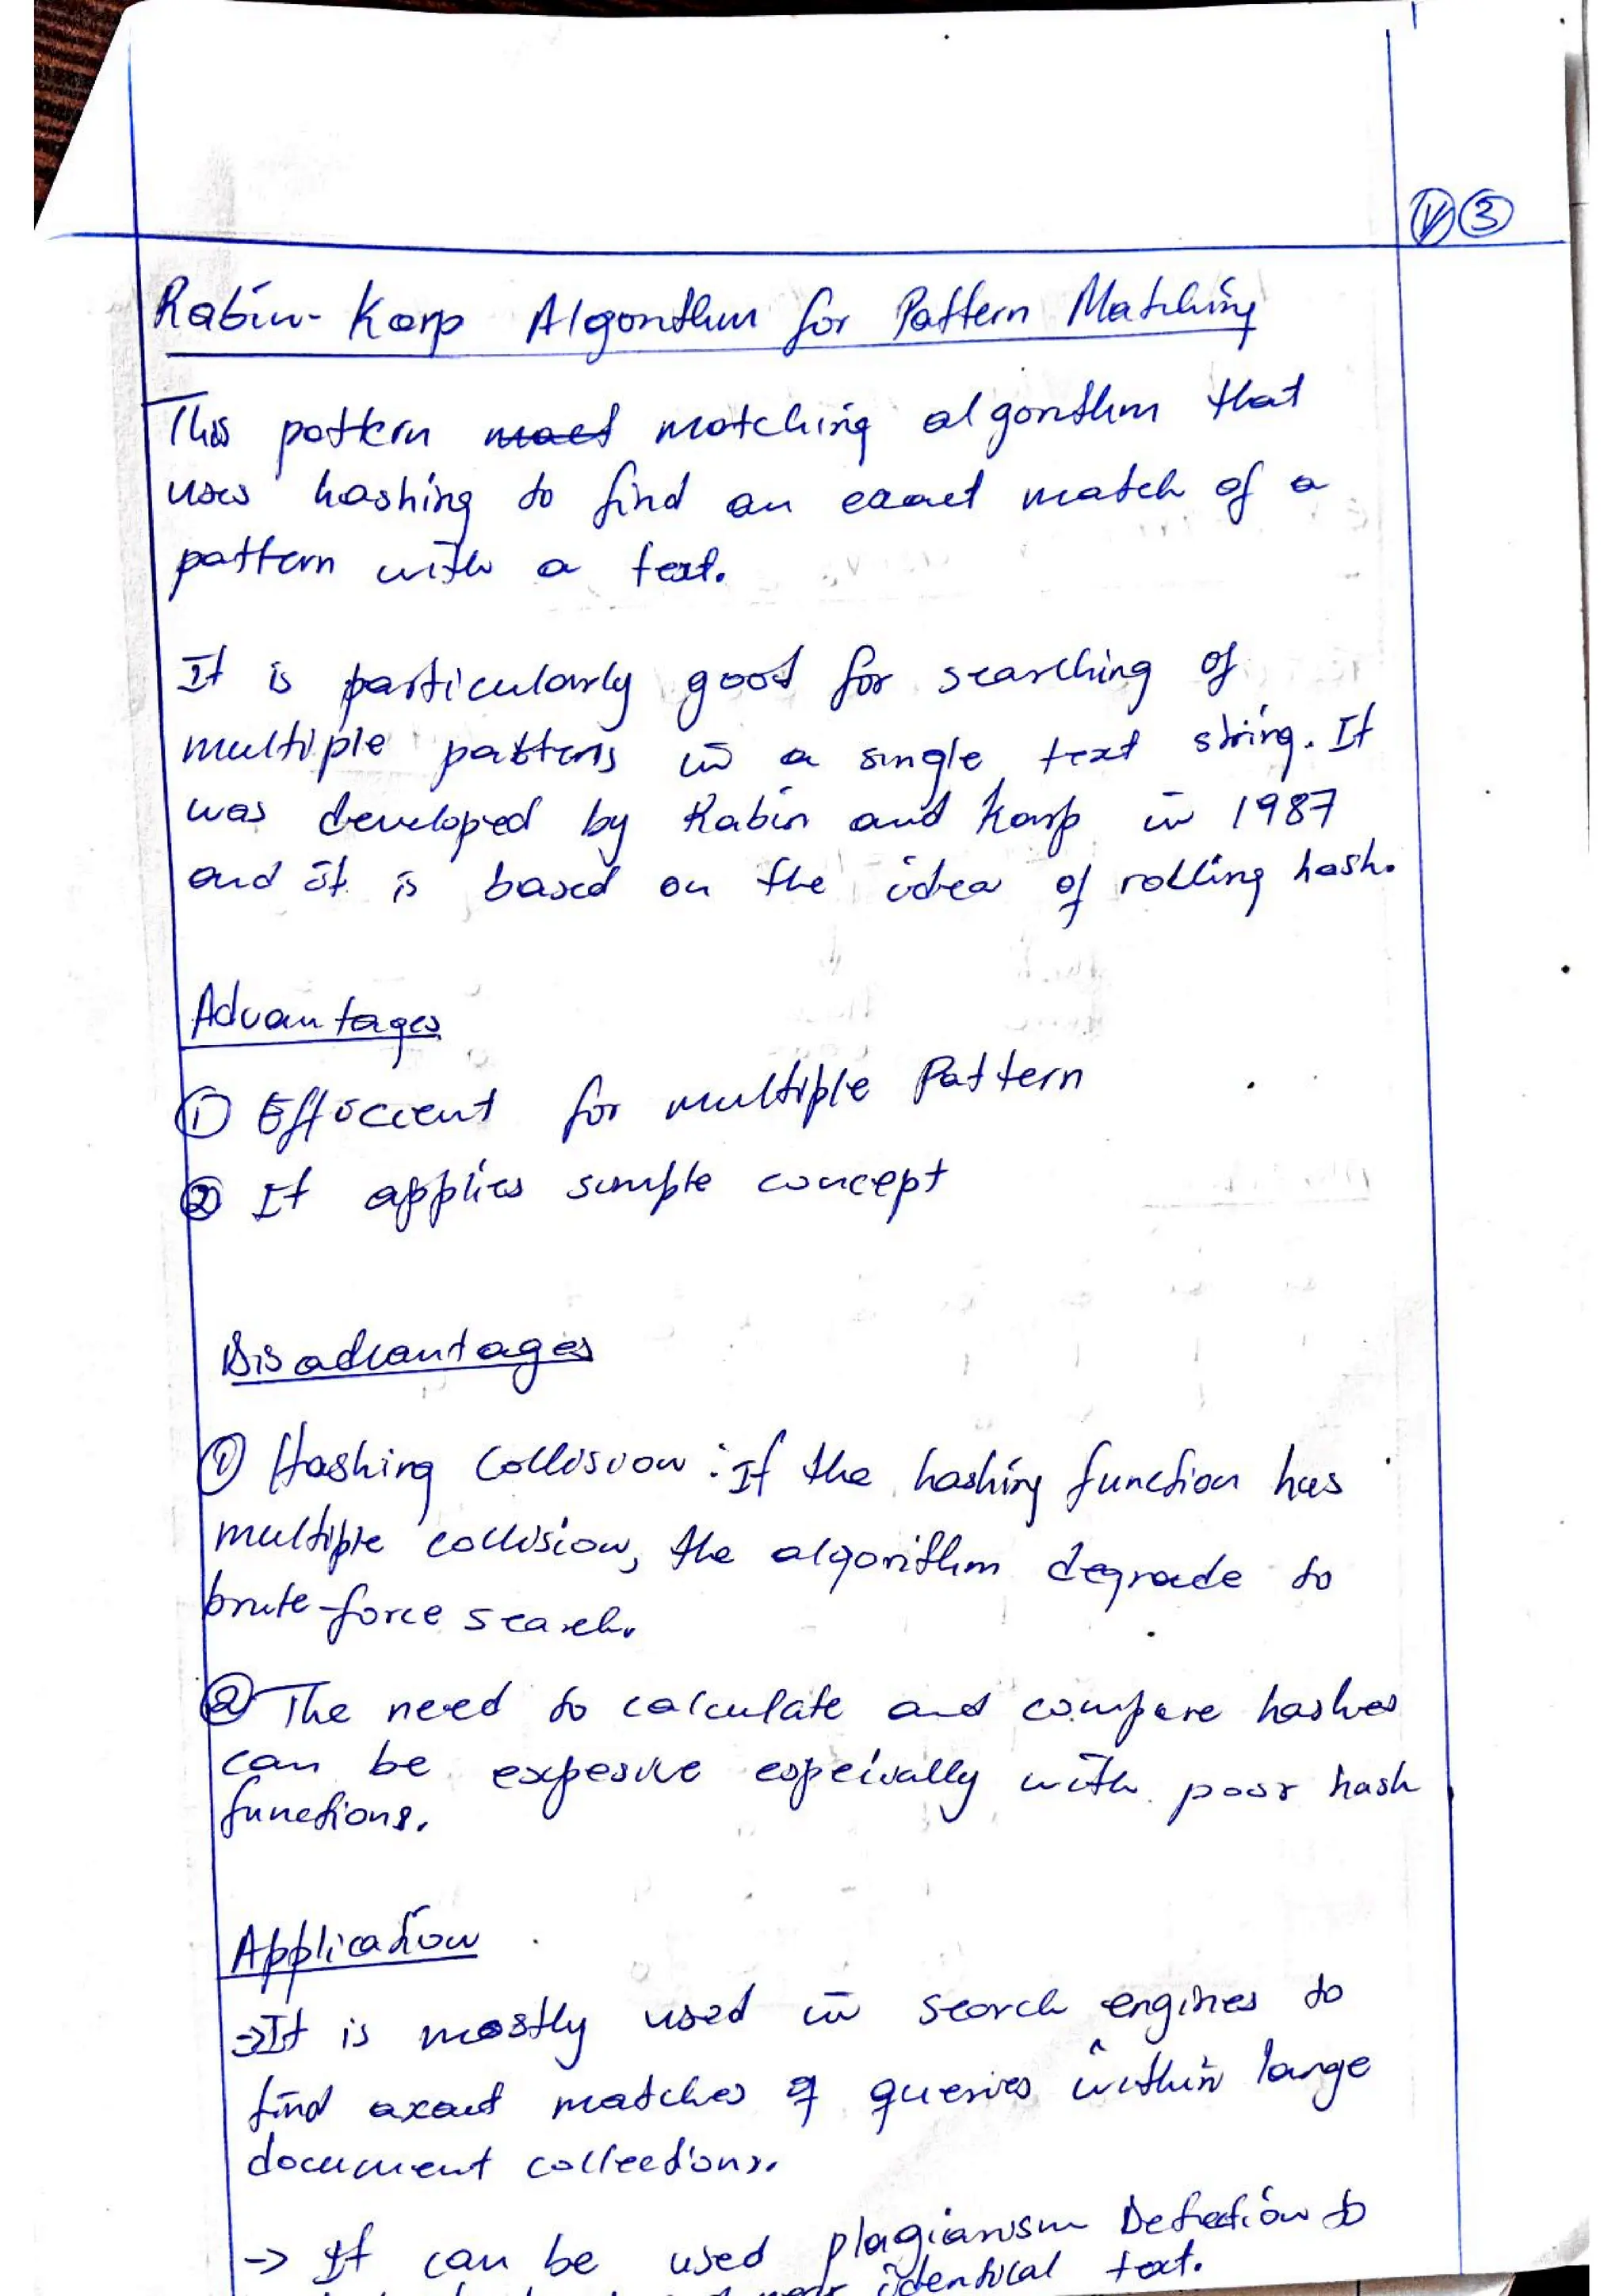 V 3
Rabin-Karp Algorithm for Pattern Matching
This pattern matching algorithm that
uses hashing to find an exact match of a
pattern with a text.
It is particularly good for searching of
multiple patterns in a single text string. It
was developed by Rabin and Karp in 1987
and it is based on the idea of rolling hash.
Advantages
① Efficient for multiple Pattern
② It applies simple concept
Disadvantages
① Hashing Collision : If the hashing function has
multiple collision, the algorithm degrade to
brute-force search.
② The need to calculate and compare hashes
can be expesive espeically with poor hash
functions.
Application
→ It is mostly used in search engines to
find exact matches of queries within large
document collections.
→ It can be used plagiarism Detection to
identical text.